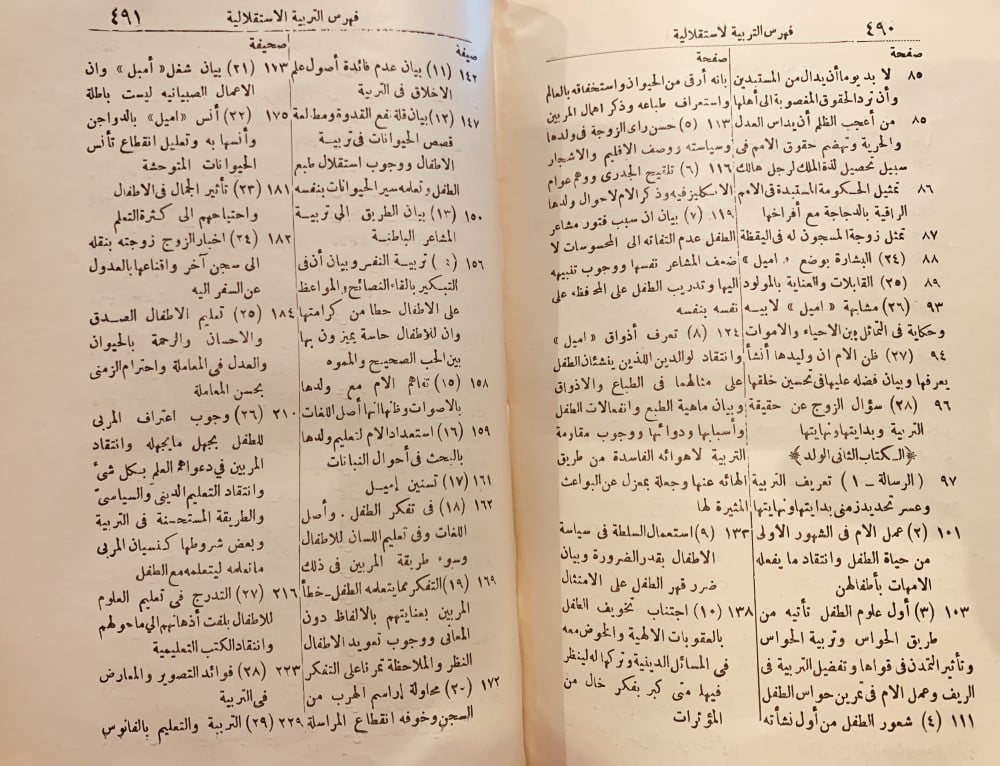 ٤٩٠ فهرس التربية لاستقلالية
صفحة
٨٥ لا بد يوما أن يدال من المستبدين
وأن ترد الحقوق المغصوبة الى أهلها
٨٥ من أعجب الظلم أن يداس العدل
والحرية وتهضم حقوق الامم فى
سبيل تحصيل لذة الملك لرجل هالك
٨٦ تمثيل الحكومة المستبدة فى الامم
الراقية بالدجاجة مع أفراخها
٨٧ تمثل زوجة المسجون له فى اليقظة
٨٨ (٢٤) البشارة بوضع «اميل»
٨٩ (٢٥) القابلات والعناية بالمولود
٩٣ (٢٦) مشابهة «اميل» لابيه
وحكاية فى التماثل بين الاحياء والاموات
٩٤ (٢٧) ظن الام ان وليدها أنشأ
يعرفها وبيان فضله عليها فى تحسين خلقها
٩٦ (٢٨) سؤال الزوج عن حقيقة
التربية وبدايتها ونهايتها
﴿الكتاب الثانى الولد﴾
٩٧ (الرسالة — ١) تعريف التربية
وعسر تحديد زمنى بدايتها ونهايتها
١٠١ (٢) عمل الام فى الشهور الاولى
من حياة الطفل وانتقاد ما يفعله
الامهات بأطفالهن
١٠٣ (٣) أول علوم الطفل تأتيه من
طريق الحواس وتربية الحواس
وتأثير التمدن فى قواها وتفضيل التربية فى
الريف وعمل الام فى تمرين حواس الطفل
١١١ (٤) شعور الطفل من أول نشأته
صفحة
بانه أرقى من الحيوان واستخفافه بالعالم
واستعراف طباعه وذكر اهمال المربين
١١٣ (٥) حسن راى الزوجة فى ولدها
وسياسته ووصف الاقليم والاشجار
١١٦ (٦) تلقيح الجدرى ووهم عوام
الانكليز فيه وذكر الام لاحوال ولدها
١١٩ (٧) بيان ان سبب فتور مشاعر
الطفل عدم التفاته الى المحسوسات لا
ضعف المشاعر نفسها ووجوب تنبيهه
اليها وتدريب الطفل على المحافظه على
نفسه بنفسه
١٢٤ (٨) تعرف أذواق «اميل»
وانتقاد لوالدين اللذين ينشئان الطفل
على مثالهما فى الطباع والاذواق
وبيان ماهية الطبع وانفعالات الطفل
وأسبابها ودوائها ووجوب مقاومة
التربية لاهوائه الفاسدة من طريق
الهائه عنها وجعلة بمعزل عن البواعث
المثيرة لها
١٣٣ (٩) استعمال السلطة فى سياسة
الاطفال بقدر الضرورة وبيان
ضرر قهر الطفل على الامتثال
١٣٨ (١٠) اجتناب تخويف الطفل
بالعقوبات الالهية والخوض معه
فى المسائل الدينية وتركها له لينظر
فيها متى كبر بفكر خال من
المؤثرات
فهرس التربية الاستقلالية ٤٩١
صيفة
١٤٢ (١١) بيان عدم فائدة أصول علم
الاخلاق فى التربية
١٤٧ (١٢) بيان قلة نفع القدوة ومطالعة
قصص الحيوانات فى تربية
الاطفال ووجوب استقلال طبع
الطفل وتعلمه سير الحيوانات بنفسه
١٥٠ (١٣) بيان الطريق الى تربية
المشاعر الباطنة
١٥٦ تربية النفس وبيان أن فى
التبكير بالقاء النصائح والمواعظ
على الاطفال حطا من كرامتها
وان للاطفال حاسة يميزون بها
بين الحب الصحيح والمموه
١٥٨ (١٥) تفاهم الام مع ولدها
بالاصوات وظنها انها أصل اللغات
١٥٩ (١٦) استعداد الام لتعليم ولدها
بالبحث فى أحوال النباتات
١٦١ (١٧) تسنين إميل
١٦٢ (١٨) فى تفكر الطفل . وأصل
اللغات وفى تعليم اللسان للاطفال
وسوء طريقة المربين فى ذلك
١٦٩ (١٩) التفكر مما يتعلمه الطفل ــ خطأ
المربين بعنايتهم بالالفاظ دون
المعانى ووجوب تعويد الاطفال
النظر والملاحظة تمرنا على التفكر
١٧٢ (٢٠) محاولة إراسم الهرب من
السجن وخوفه انقطاع المراسلة
صحيفة
١٧٣ (٢١) بيان شغل «أميل» وان
الاعمال الصبيانيه ليست باطلة
١٧٥ (٢٢) أنس «اميل» بالدواجن
وأنسها به وتعليل انقطاع تأنس
الحيوانات المتوحشة
١٨١ (٢٣) تأثير الجمال فى الاطفال
واحتياجهم الى كثرة التعلم
١٨٢ (٢٤) اخبار الزوج زوجته بنقله
الى سجن آخر واقناعها بالعدول
عن السفر اليه
١٨٤ (٢٥) تعليم الاطفال الصدق
والاحسان والرحمة بالحيوان
والعدل فى المعاملة واحترام الزمنى
بحسن المعاملة
٢١٠ (٢٦) وجوب اعتراف المربى
للطفل بجهل مايجهله وانتقاد
المربين فى دعواهم العلم بكل شىء
وانتقاد التعليم الدينى والسياسى
والطريقة المستحسنة فى التربية
وبعض شروطها كنسيان المربى
ما تعلمه ليتعلمه مع الطفل
٢١٦ (٢٧) التدرج فى تعليم العلوم
للاطفال بلفت أذهانهم الى ما حولهم
وانتقاد الكتب التعليمية
٢٢٣ (٢٨) فوائد التصوير والمعارض
فى التربية
٢٢٩ (٢٩) التربية والتعليم بالفانوس